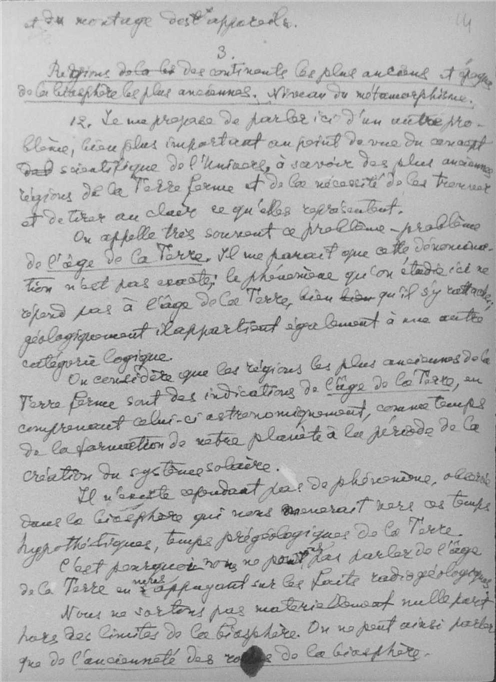 et du montage des appareils.
14
3.
Régions de la des continents les plus anciens et époque
de la lithosphère les plus anciennes. Niveau du métamorphisme.
12. Je me propose de parler ici d'un autre pro-
blème, bien plus important au point de vue du concept
scientifique de l'Univers, à savoir des plus anciennes
régions de la Terre ferme et de la nécessité de les trouver
et de tirer au clair ce qu'elles représentent.
On appelle très souvent ce problème – problème
de l'âge de la Terre. Il me parait que cette dénomina-
tion n'est pas exacte; le phénomène qu'on étudie ici ne
répond pas à l'âge de la Terre, bien qu'il s'y rattache,
géologiquement il appartient également à une autre
catégorie logique.
On considère que les régions les plus anciennes de la
Terre ferme sont des indications de l'âge de la Terre, en
comprenant celui-ci astronomiquement, comme temps
de la formation de nôtre planète à la periode de la
création du système solaire.
Il n'existe cependant pas de phénomène, observé
dans la biosphère qui nous menerait vers ces temps
hypothétiques, temps prégéologiques de la Terre.
C'est pourquoi nous ne pouvons pas parler de l'âge
de la Terre en nous appuyant sur les faits radiogéologiques.
Nous ne sortons pas materiellement nulle part
hors des limites de la biosphère. On ne peut ainsi parler
que de l'ancienneté des roches de la biosphère.